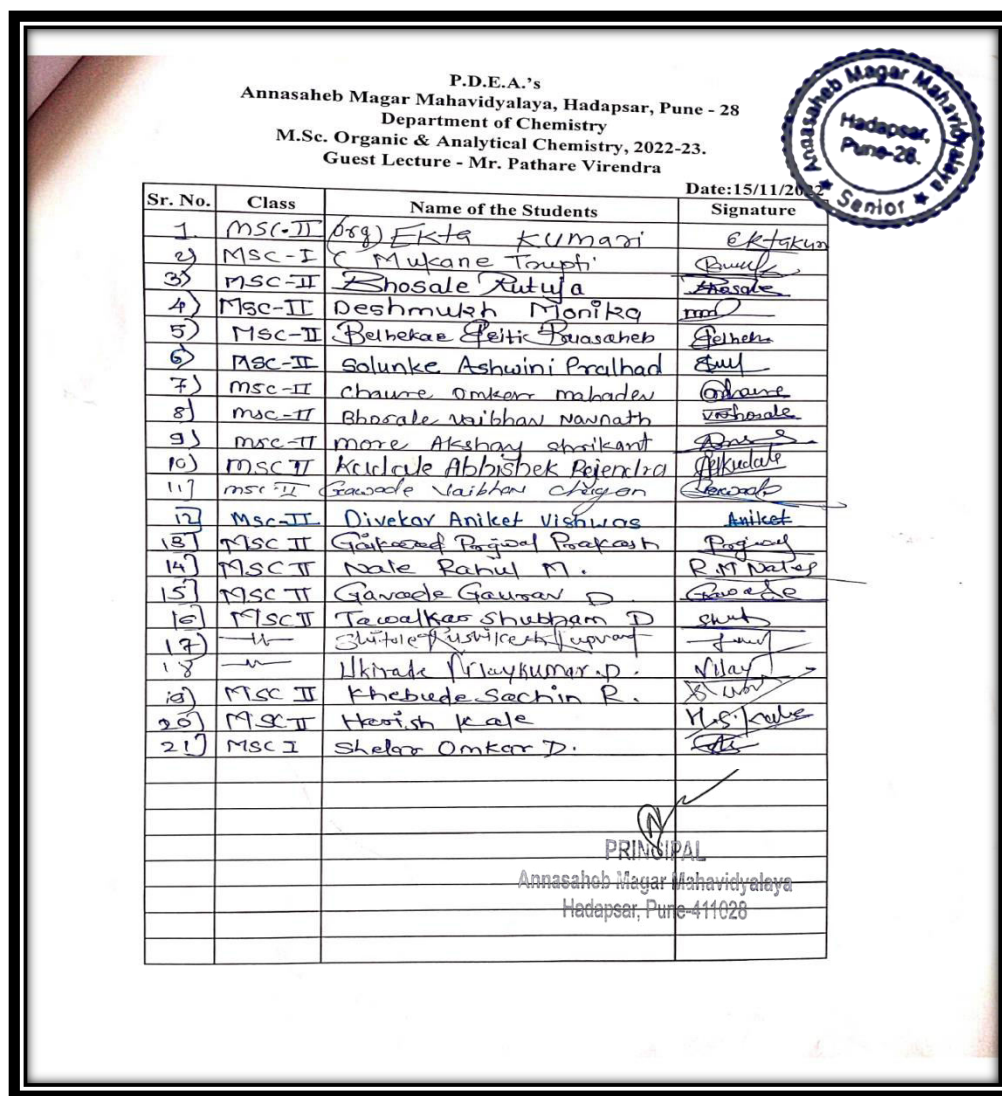 P.D.E.A.'s
Annasaheb Magar Mahavidyalaya, Hadapsar, Pune - 28
Department of Chemistry
M.Sc. Organic & Analytical Chemistry, 2022-23.
Guest Lecture - Mr. Pathare Virendra
Annasaheb Magar Mahavidyalaya
Hadapsar,
Pune-28.
★ Senior ★
Date:15/11/2022
Sr. No. Class Name of the Students Signature
1. MSC-II (org) Ekta Kumari Ektakum
2) MSC-I Mukane Trupti
3) MSC-II Bhosale Rutuja Bhosale
4) MSC-II Deshmukh Monika
5) MSC-II Belhekar
6) MSC-II Solunke Ashwini Pralhad
7) MSC-II Chaure Omkar mahadev
8) MSC-II Bhosale Vaibhav Navnath vrbhosale
9) MSC-II more Akshay shrikant
10) MSC II Kudale Abhishek Rejendra
11] MSC-II Gawade Vaibhav
12] MSC-II Divekar Aniket Vishwas Aniket
13] MSC II Gaikwad Prakash
14] MSC II Nale Rahul M. R.M Nale
15] MSC II Gavade Gaurav D Gavade
16] MSC II Tawalkar Shubham D
17) Shitole
18 Ukirade Vijaykumar.D. Vijay
19] MSC II Khebude Sachin R.
20] MSC II Harish Kale H.S.Kale
21] MSC I Shelar Omkar D.
PRINCIPAL
Annasaheb Magar Mahavidyalaya
Hadapsar, Pune-411028